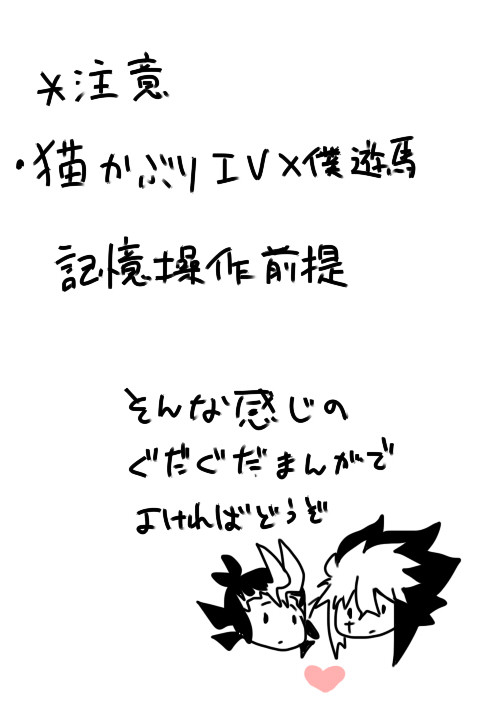 *注意
・猫かぶりIV×僕遊馬
記憶操作前提
そんな感じの
ぐだぐだまんがで
よければどうぞ